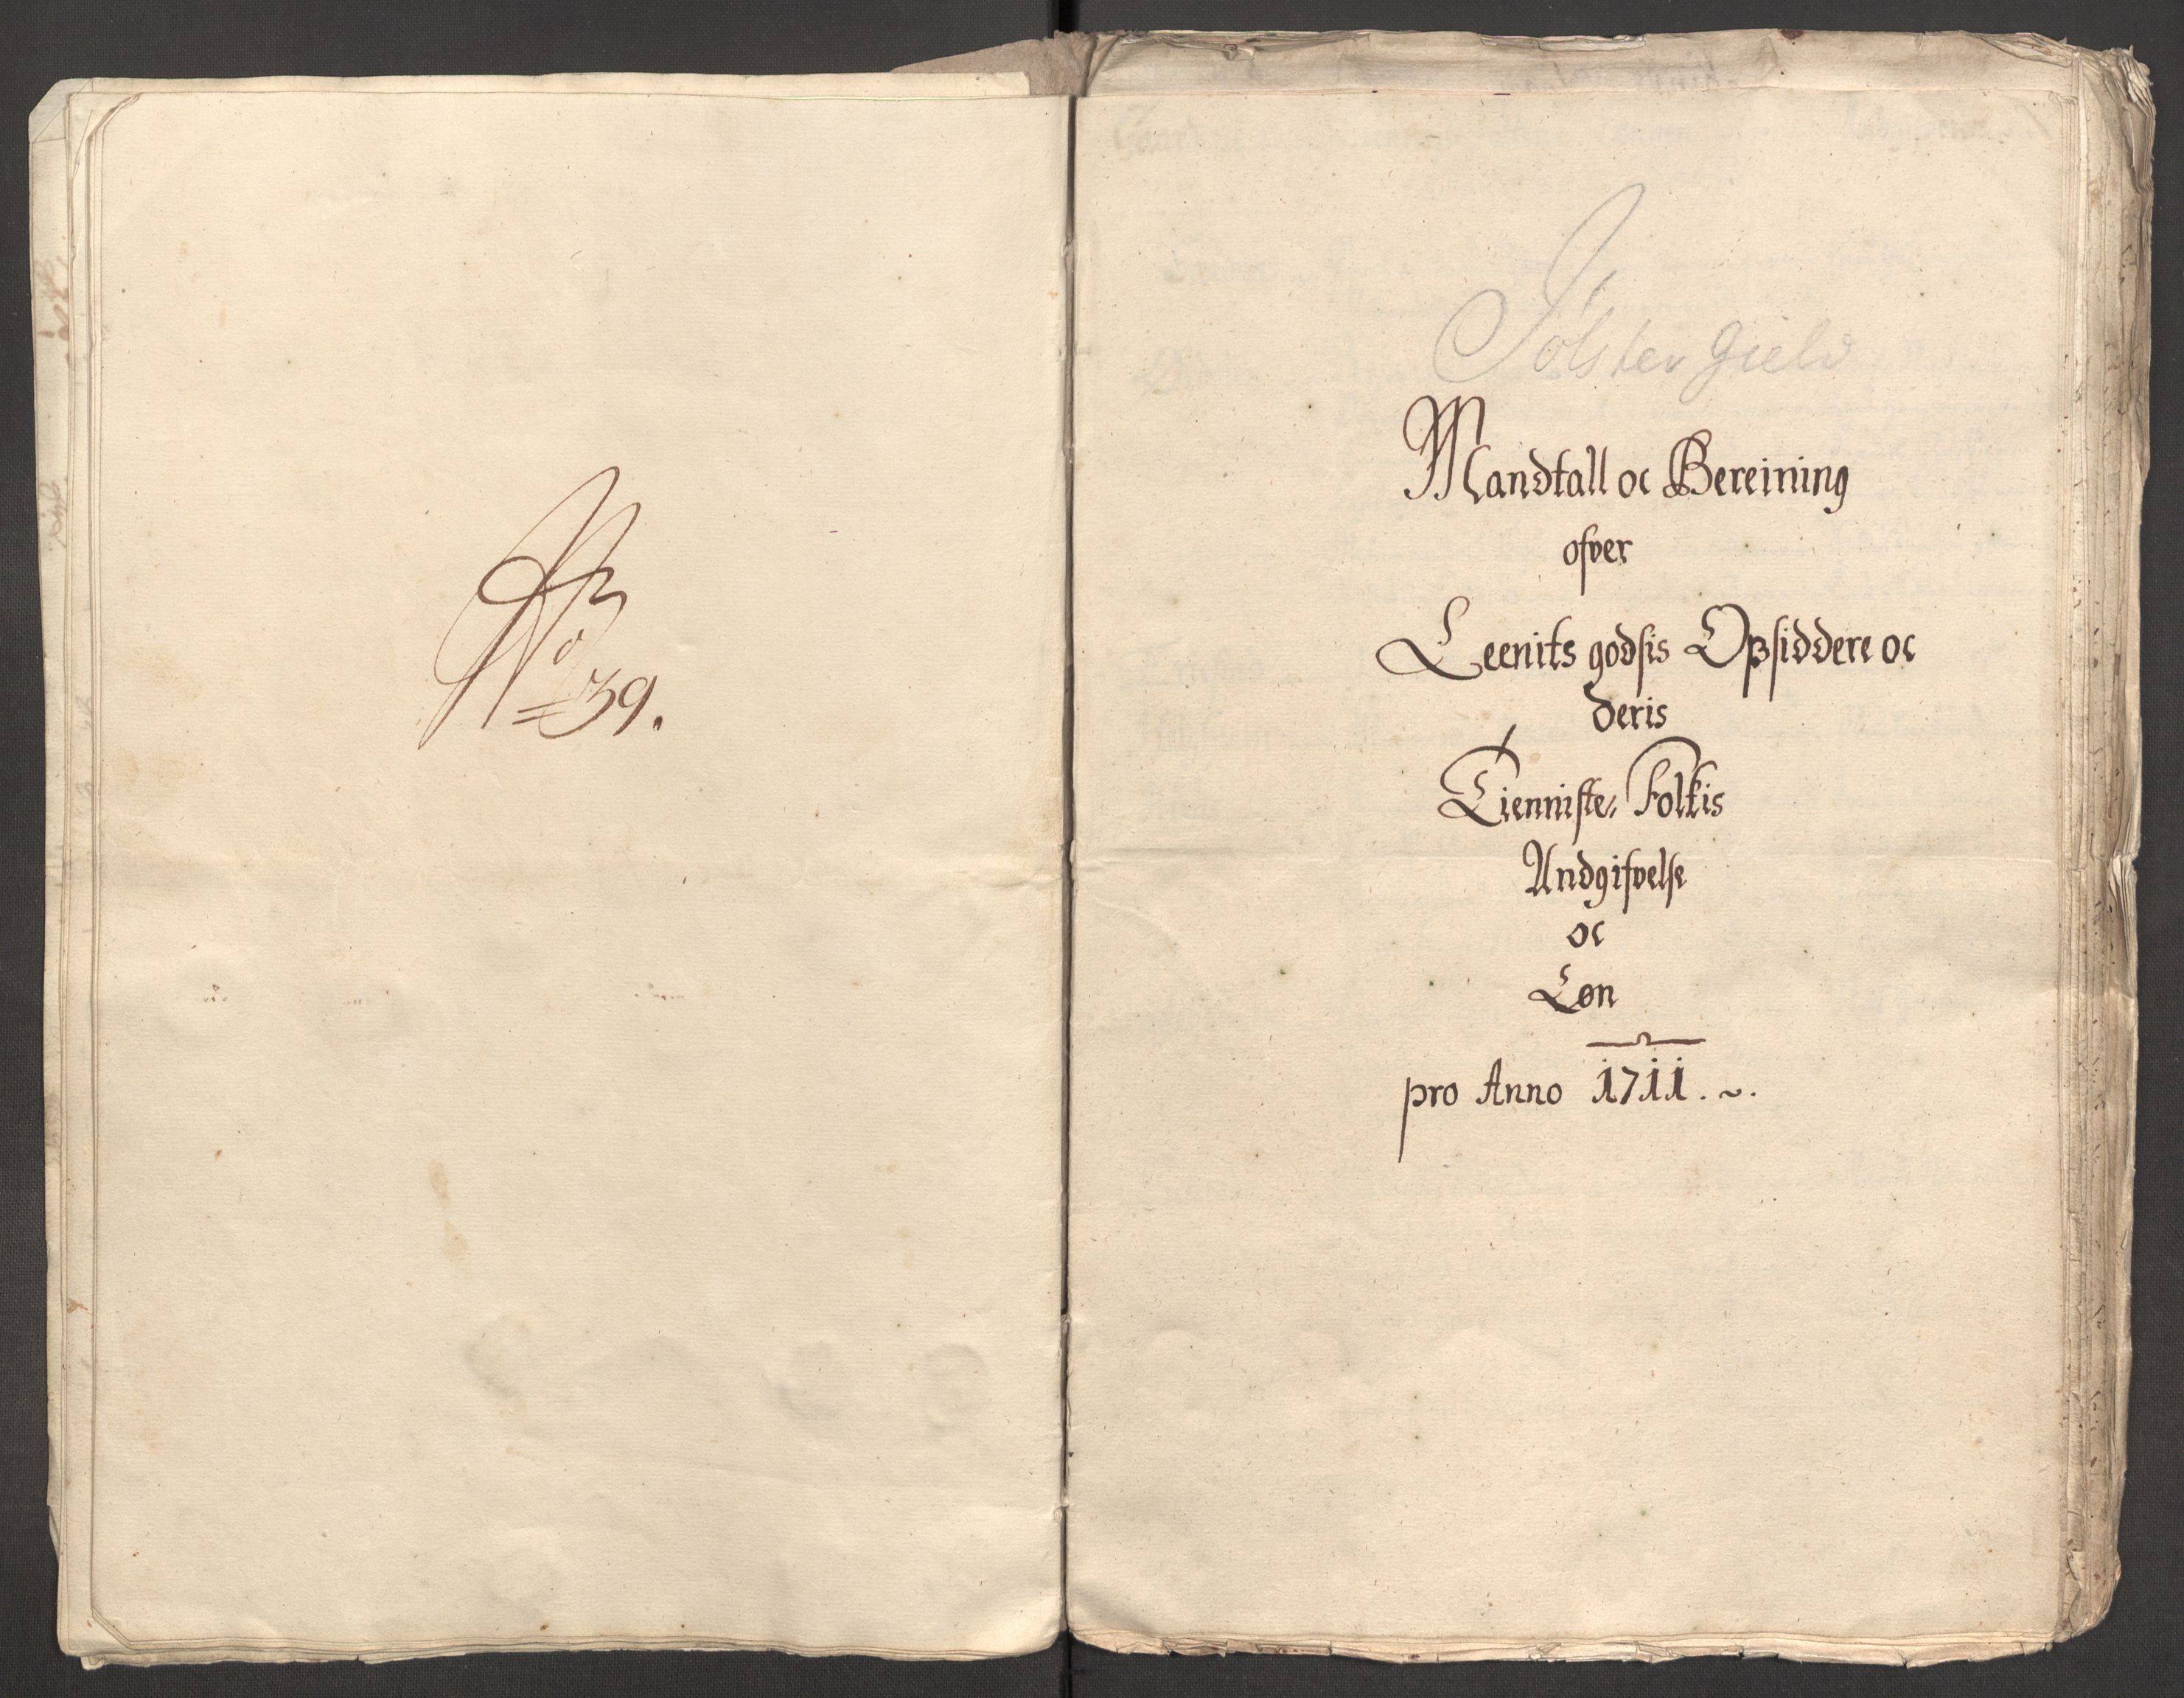 No
39.
Jölster gield
Mandtall oc Bereining
ofver
Leenits godsis Opsiddere oc
deris
Tienniste, Folkis
Undgifvelse
oc
Løn
pro Anno 1711. ~.